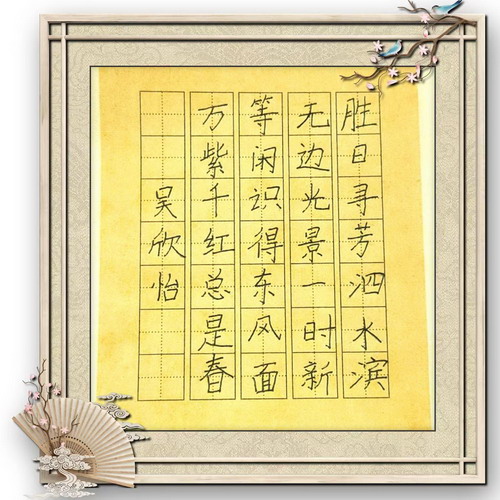 胜日寻芳泗水滨
无边光景一时新
等闲识得东风面
万紫千红总是春
吴欣怡